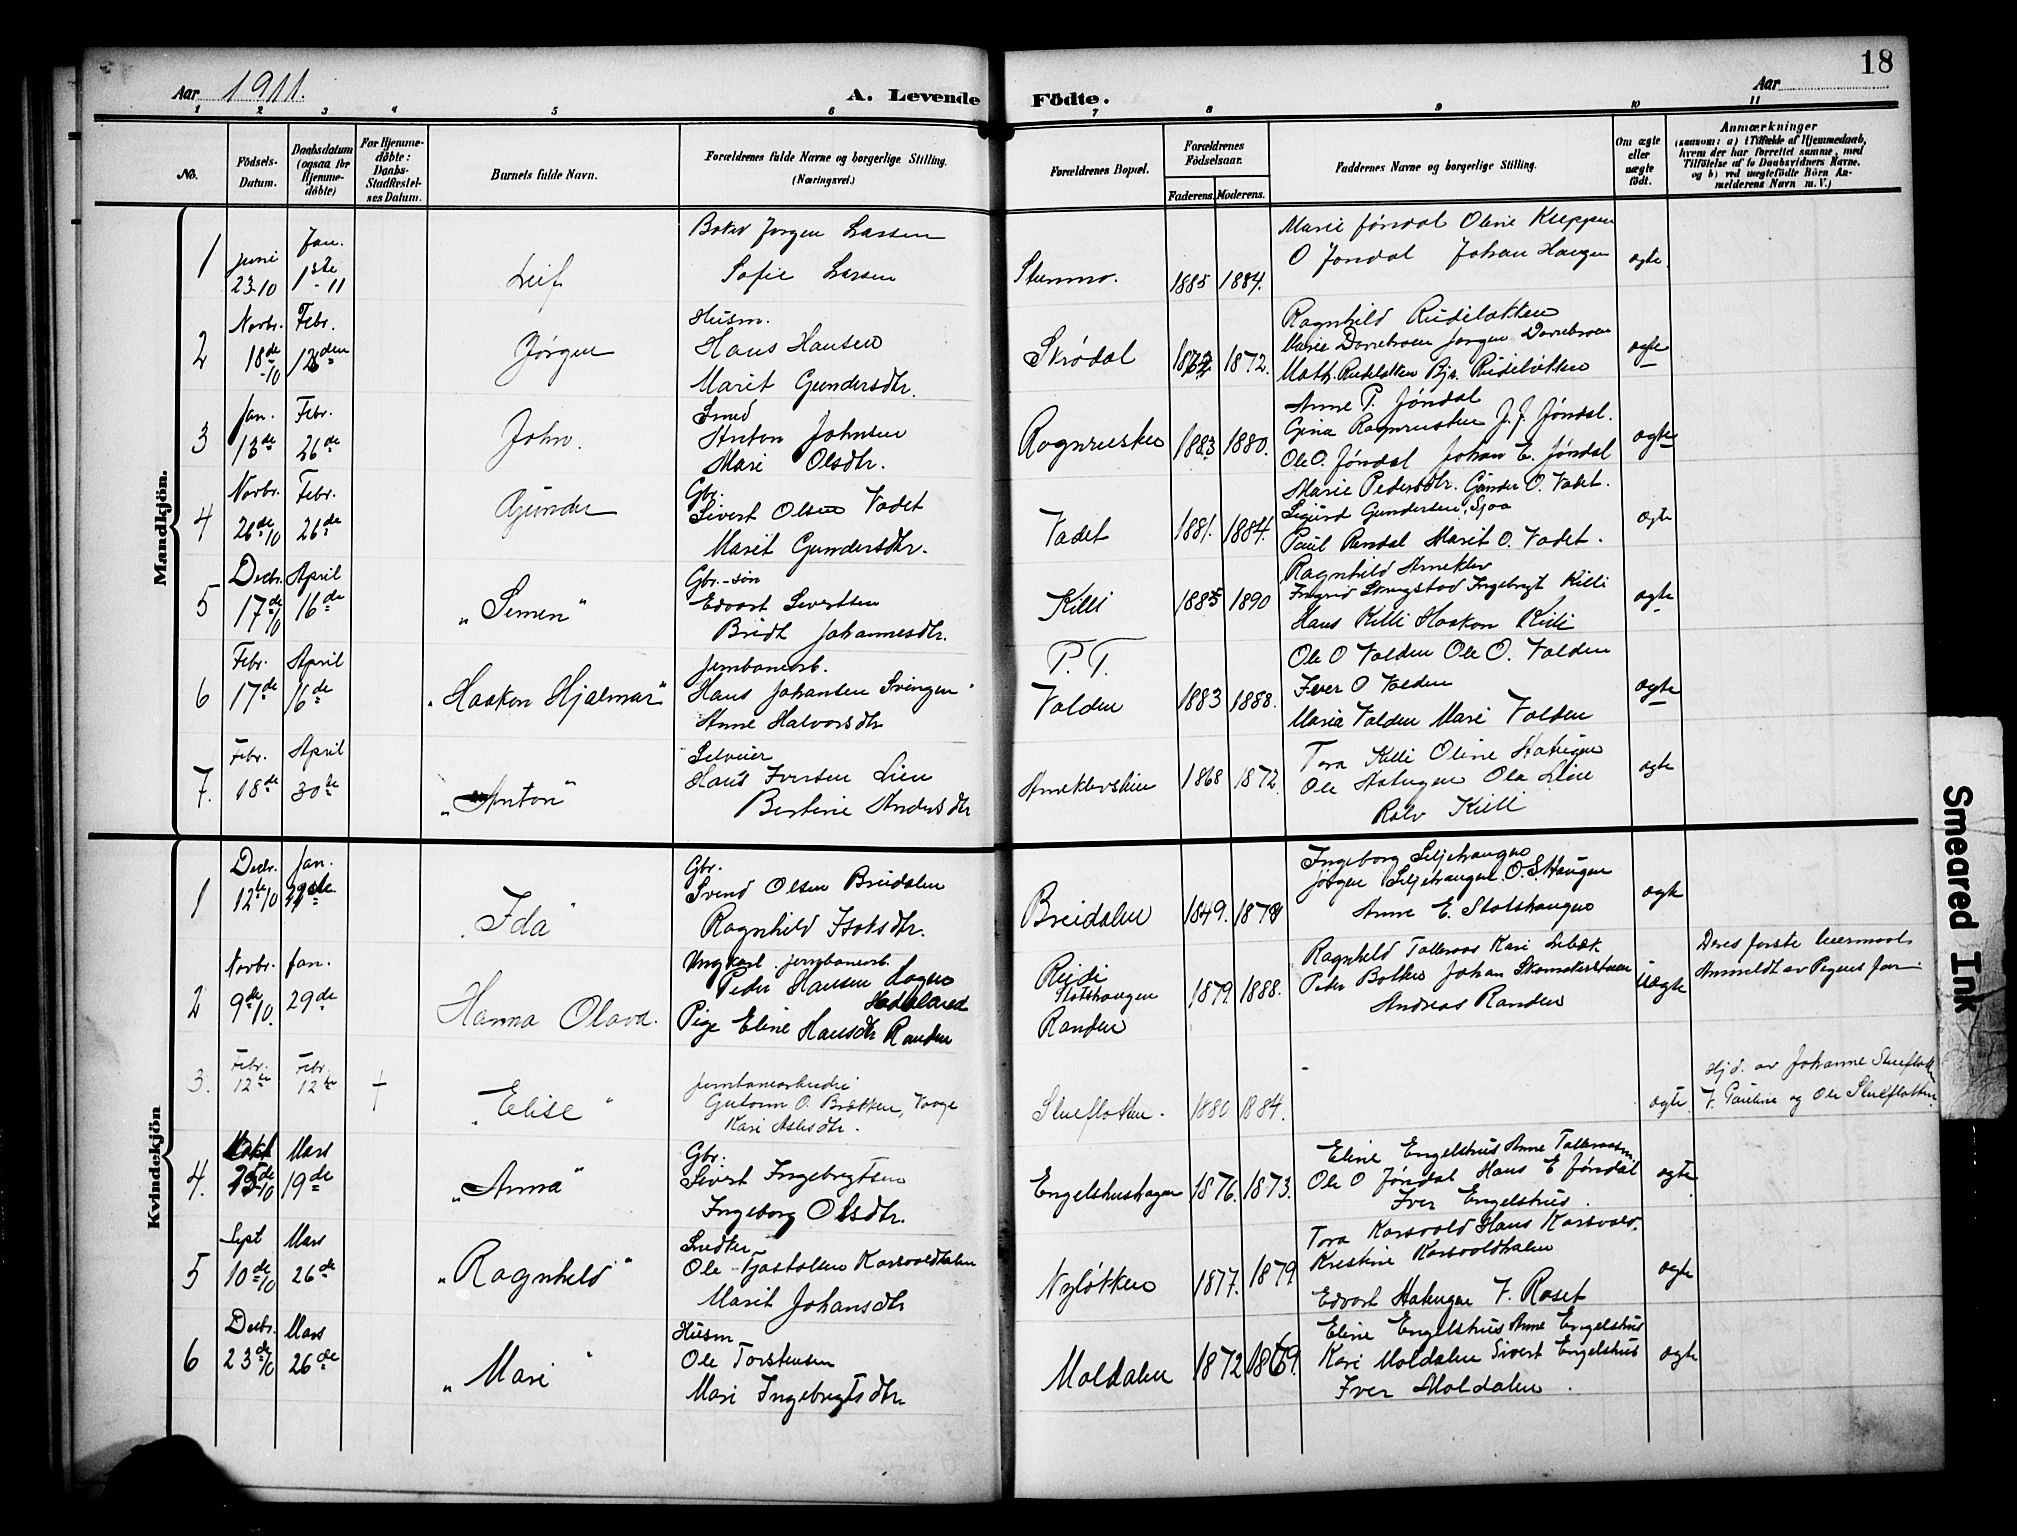 18
Aar 1911.
A. Levende Födte.
Aar
1 2 3 4 5 6 7 8 9 10 11
No.
Födsels-Datum.
Daabsdatum (ogsaa for Hjemme-döbte)
For Hjemme-döbte: Daabs-Stadfæstel-ses Datum.
Barnets fulde Navn.
Forældrenes fulde Navne og borgerlige Stilling. (Næringsvei.)
Forældrenes Bopæl.
Forældrenes Födselsaar.
Faderens. Moderens.
Faddernes Navne og borgerlige Stilling.
Om ægte eller uægte födt.
Anmærkninger
(saasom: a) i Tilfælde af Hjemmedaab,
hvem der har forrettet samme, med
Tilföielse af to Daabsvidners Navne.
og b) ved uægtefödte Börn An-
melderens Navn m. V.)
Mandkjön.
1 Juni 23-10 Jan. 1ste-11 Leif
Jørgen Larsen
Sofie Larsen
1885 1884.
Marie Jøndal Oline Kleppen
O Jøndal Johan Haugen
ægte.
2 Novbr. 18de-10 Febr. Jørgen
Husm.
Hans Hansen
Marit Gundersdtr.
Skrødal 1872.
Ragnhild Rudiløkken
Marie Jørgen
Math. Rudiløkken Bj. Rudiløkken
ægte
3 Jan. 13de Febr. 26de John.
Smed
Anton Johnsen
Mari Olsdtr.
Rognrusten 1883 1880.
Anne P. Jøndal
Gina Rognrusten J. J. Jøndal.
Ole O. Jøndal Johan E. Jøndal
ægte
4 Novbr. 26de/10 Febr. 26de Gunder
Gbr.
Sivert Olsen Vadet
Marit Gundersdtr.
Vadet 1881. 1884.
Marie Pedersdtr. Gunder O. Vadet.
Sigurd Gundersen, Sjoa
Paul Randal Marit O. Vadet.
ægte
5 Decbr. 17de/10 April 16de "Simen"
Gbr.-søn
Edvart Sivertsen
Bridt Johannesdtr.
Killi 1885 1890
Ragnhild Arneklev
Ingrid Ingebrigt Killi
Hans Killi Haakon Killi
ægte
6 Febr. 17de April 16de "Haakon Hjalmar"
Jernbanearb.
Hans Johansen Svingen
Anne Halvorsdtr
P. T.
Volden 1883 1888.
Ole O Volden Ole O. Volden
Iver O Volden
Maria Volden Mari Volden
ægte
7. Febr. 18de April 30te "Anton"
Selveier
Hans Iversen Lien
Bertine Andersdtr
Arneklevslien 1868 1872.
Tora Killi Oline Hatugen
Ole Hatugen Ola Lien
Rolv Killi
ægte
Kvindekjön
1 Decbr. 12te/10 Jan. "Ida"
Gbr.
Svend Olsen Breidalen
Ragnhild Isaksdtr.
Breidalen 1849.
Ingeborg Seljehaugen
Jørgen Seljehaugen. O. S. Haugen
Anne E. Slotshaugen
ægte
2 Novbr. 9de/10. Jan. 29de Hanna Olava.
Ungkarl. jernbanearb.
Peder Hansen Hagen
Hadeland
Pige Eline Hansdtr Randen
Slotshaugen
Randen
1879. 1888.
Ragnhild Tolleraas Kari
Peter Johan
Andreas Randen
Uægte
Deres første leiermaal.
Anmeldt av Pigens far
3. Febr. 12te Febr. 12te † "Elise"
Jernbanearbeider
Gutorm O. Brækken, Vaage
Kari Aslesdtr.
Slueflotten. 1880 1884.
ægte.
Hjd. av Johanne Slueflotten
V. Pauline og Ole Slueflotten.
4. Mars 19de "Anna"
Gbr.
Sivert Ingebrigtsen
Ingeborg Olsdtr.
Engelshushagen 1876. 1873.
Eline Engelshus Anne Tolleraasm.
Ole O Jøndal Hans E Jøndal
Iver Engelshus.
ægte
5 Sept 10de/10 Mars 26de "Ragnhild"
Ole Tjostolsen Korsvoldhalen
Marit Johansdtr
Nyløkken 1877. 1879
Tora Korsvold Hans Korsvold.
Kristine Korsvoldhalen
Edvart Hatugen V. Roset
ægte
6 Decbr. 23de/10 Mars 26de "Mari"
Husm
Ole Torstensen
Mari Ingebrigtsdtr.
Moldalen 1872 1869.
Eline Engelshus Anne Engelshus
Kari Moldalen Sivert Engelshus
Iver Moldalen.
ægte
Smeared Ink